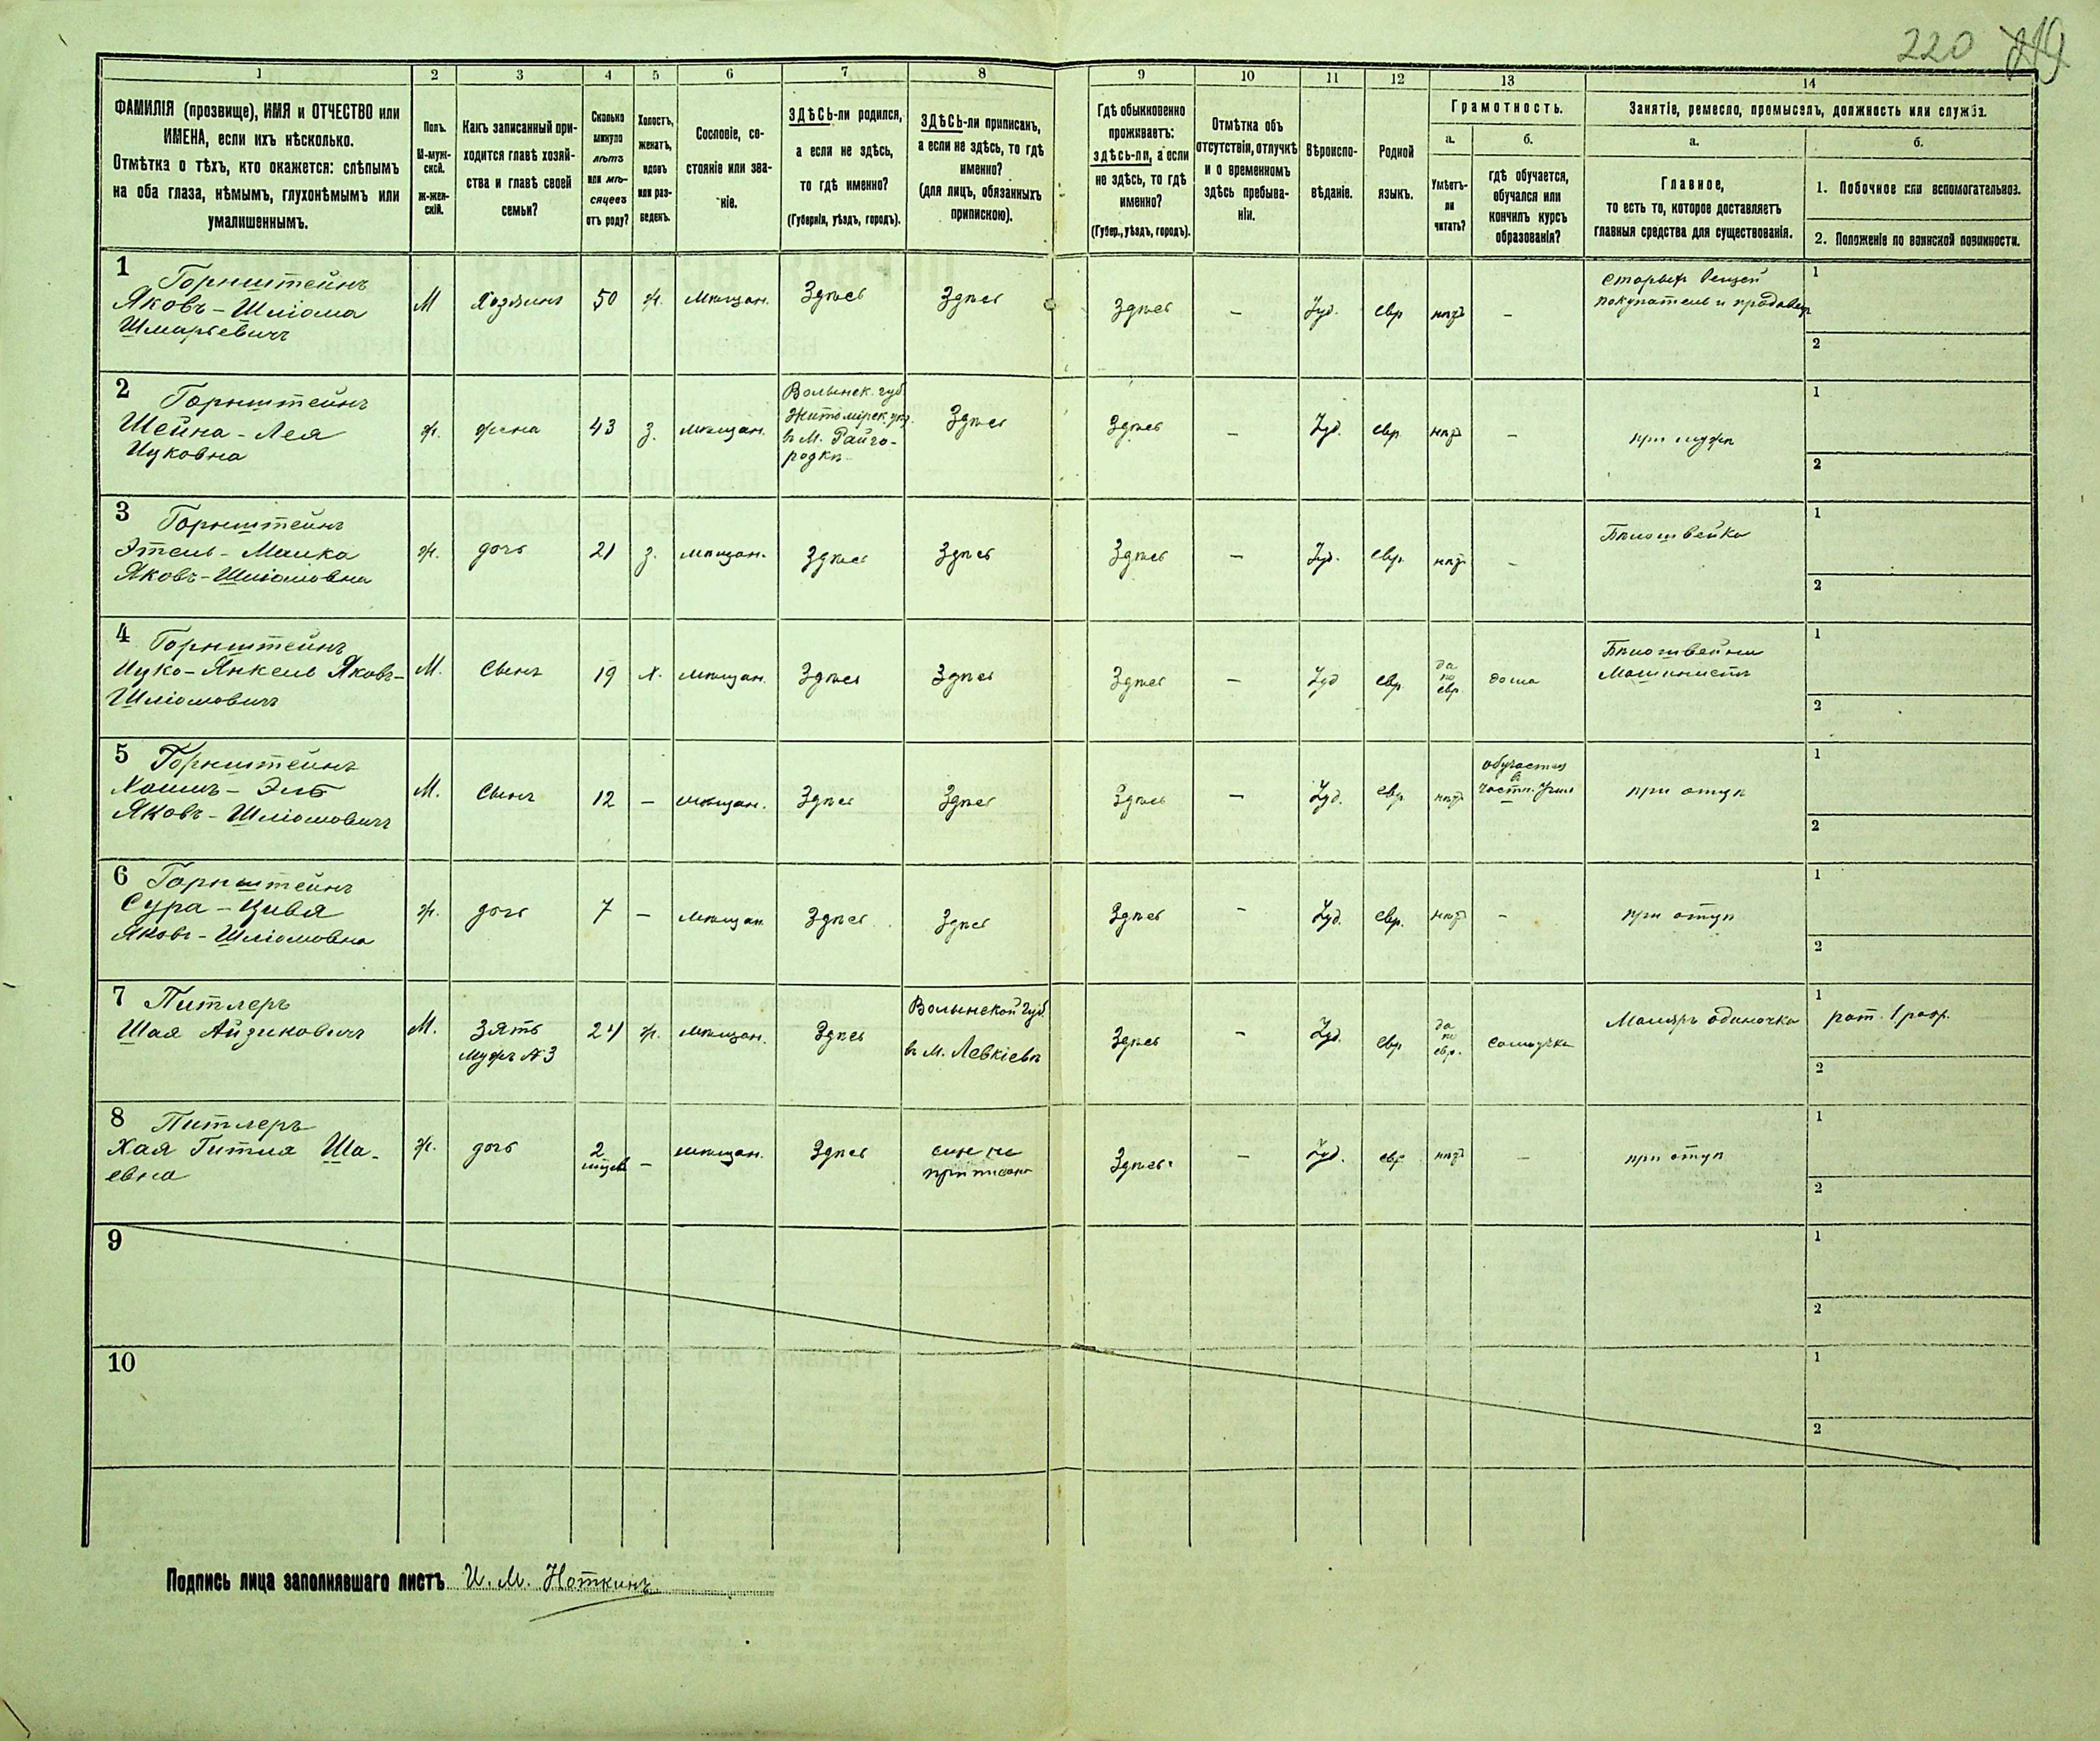 220 219
1 2 3 4 5 6 7 8 9 10 11 12 13 14
ФАМИЛІЯ (прозвище), ИМЯ и ОТЧЕСТВО или
ИМЕНА, если ихъ нѣсколько.
Отмѣтка о тѣхъ, кто окажется: слѣпымъ
на оба глаза, нѣмымъ, глухонѣмымъ или
умалишеннымъ.
Полъ.
М-муж-
ской.
Ж-жен-
скій.
Какъ записанный при-
ходится главѣ хозяй-
ства и главѣ своей
семьи?
Сколько
минуло
лѣтъ
или мѣ-
сяцевъ
отъ роду?
Холостъ,
женатъ,
вдовъ
или раз-
веденъ.
Сословіе, со-
стояніе или зва-
ніе.
ЗДѢСЬ-ли родился,
а если не здѣсь,
то гдѣ именно?
(Губернія, уѣздъ, городъ).
ЗДѢСЬ-ли приписанъ,
а если не здѣсь, то гдѣ
именно?
(для лицъ, обязанныхъ
припискою).
Гдѣ обыкновенно
проживаетъ:
здѣсь-ли, а если
не здѣсь, то гдѣ
именно?
(Губер., уѣздъ, городъ).
Отмѣтка объ
отсутствіи, отлучкѣ
и о временномъ
здѣсь пребыва-
ніи.
Вѣроиспо-
вѣданіе.
Родной
языкъ.
Грамотность.
а.
Умѣетъ-
ли
читать?
б.
гдѣ обучается,
обучался или
кончилъ курсъ
образованія?
Занятіе, ремесло, промыселъ, должность или служба.
а.
Главное,
то есть то, которое доставляетъ
главныя средства для существованія.
б.
1. Побочное или вспомогательное.
2. Положеніе по воинской повинности.
1 Горнштейнъ
Яковъ-Шліома
Шмарьевичъ
М Хозяинъ 50 ж. мѣщан. Здѣсь Здѣсь Здѣсь – Іуд. евр нѣтъ –
Старыхъ вещей
покупатель и продавец
1
2
2 Горнштейнъ
Шейна-Лея
Ицковна
ж. жена 43 з. мѣщан.
Волынск. губ.
Житомірск. уѣз.
въ М. Райго-
родкѣ
Здѣсь Здѣсь – Іуд. евр нѣтъ – при мужѣ
1
2
3 Горнштейнъ
Этель-Малка
Яковъ-Шліомовна
ж. дочь 21 з. мѣщан. Здѣсь Здѣсь Здѣсь – Іуд. евр. нѣтъ – Бѣлошвейка
1
2
4 Горнштейнъ
Ицко-Янкель Яковъ-
Шліомовичъ
М. Сынъ 19 х. мѣщан. Здѣсь Здѣсь Здѣсь – Іуд евр.
да
по
евр
дома
Бѣлошвейный
Машинистъ
1
2
5 Горнштейнъ
Яковъ-Шліомовичъ
М. Сынъ 12 – мѣщан. Здѣсь Здѣсь Здѣсь – Іуд. евр нѣтъ
обучается
в
частн. Учил
при отцѣ
1
2
6 Горнштейнъ
Сура-Цивя
Яковъ-Шліомовна
ж. дочь 7 – мѣщан Здѣсь Здѣсь Здѣсь – Іуд. евр. нѣтъ – при отцѣ
1
2
7 Питлеръ
Шая Айзиковичъ
М.
Зять
Мужъ №3
24 ж. мѣщан. Здѣсь
Волынской губ.
въ М. Левкіевѣ
Здѣсь – Іуд. евр
да
по
евр.
самоучка Маляръ одиночка
1 рат. 1 разр.
2
8 Питлеръ
Хая Гитля Ша-
евна
ж. дочь
2
мѣсяца
– мѣщан. Здѣсь
еще не
приписана
Здѣсь – Іуд. евр нѣтъ – при отцѣ
1
2
9
1
2
10
1
2
Подпись лица заполнявшаго листъ И. М. Ноткинъ